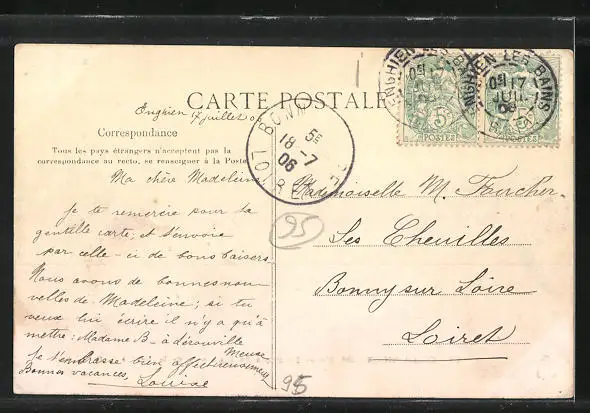 CARTE POSTALE
Enghien 17 juillet 06
Correspondance
Tous les pays étrangers n'acceptent pas la
correspondance au recto, se renseigner à la Poste
Ma chère Madeleine
Je te remercie pour ta
gentille carte, et t'envoie
par celle-ci de bons baisers
Nous avons de bonnes nou-
velles de Madeleine; si tu
veux lui écrire il n'y a qu'à
mettre: Madame B- à dérouville
Meuse
Je t'embrasse bien affectueusement
Bonnes vacances, Louise
ENGHIEN LES BAINS
17
JUIL
06
5c
POSTES
ENGHIEN LES BAINS
17
JUIL
06
5c
POSTES
BONNY
5E
18-7
06
LOIRET
Mademoiselle M. Foucher
Les Chenilles
Bonny sur Loire
Loiret
95
95